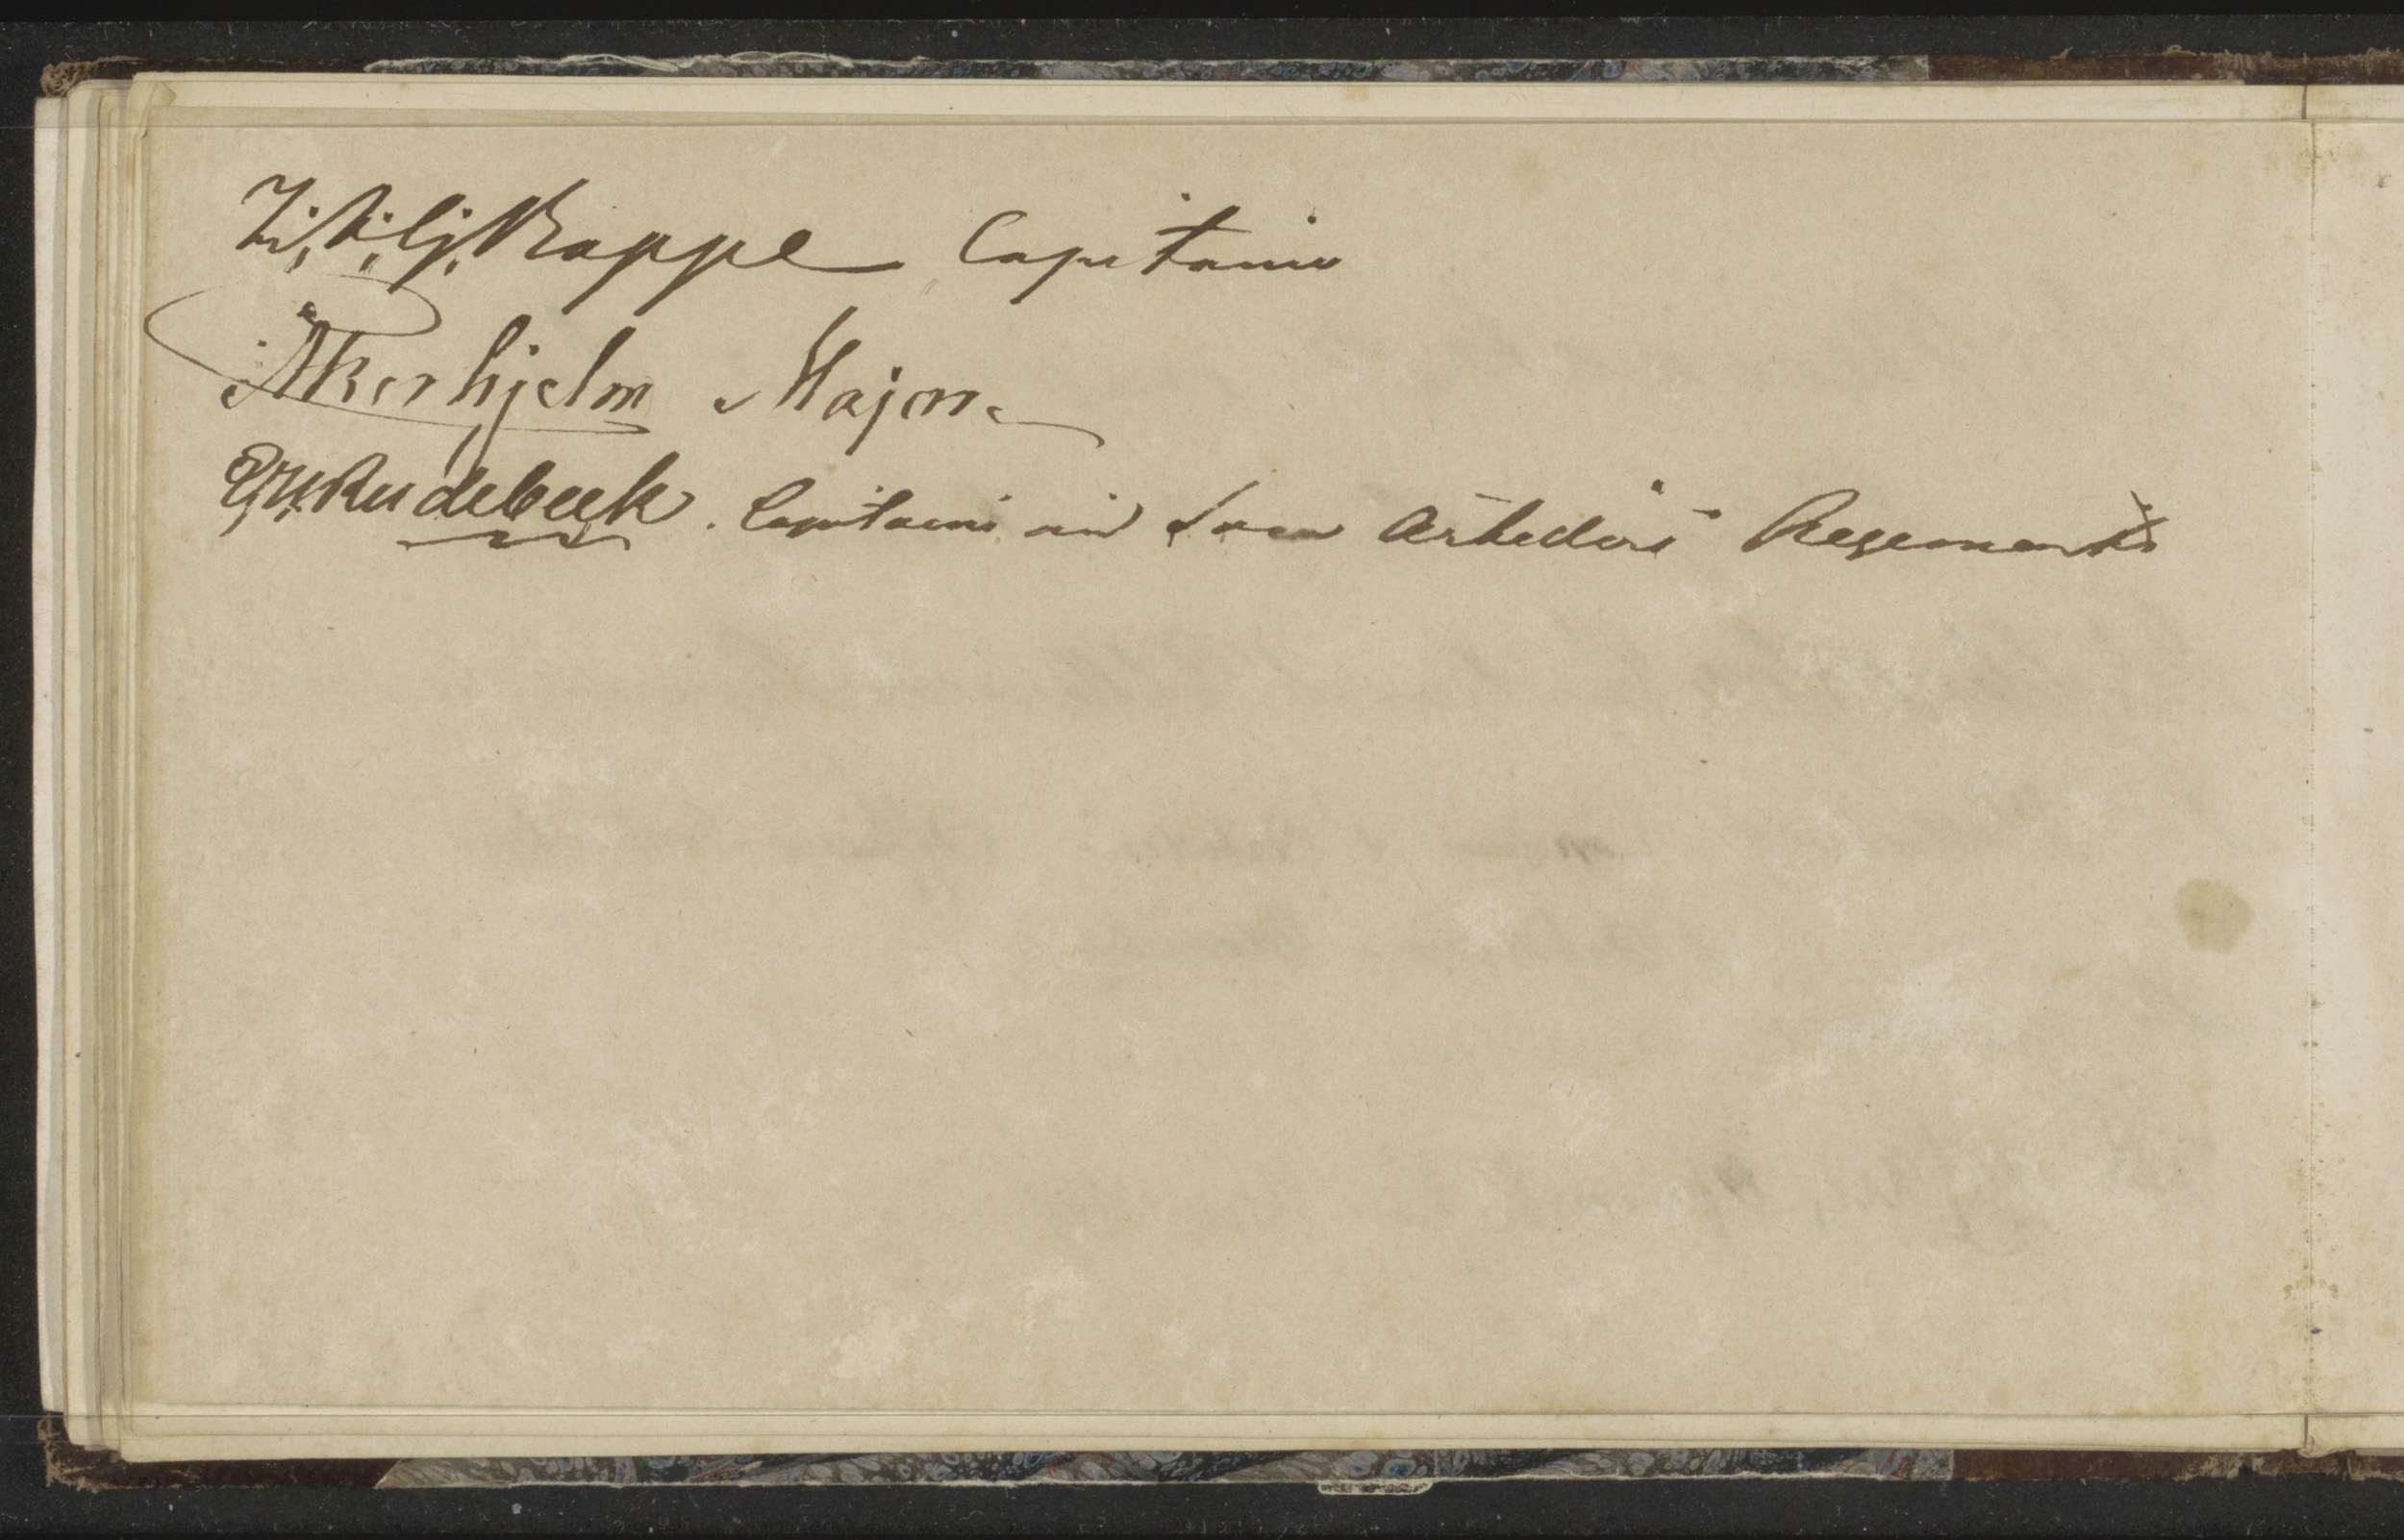 Rappe Capitaine
Åkerhjelm Major
Rudebeck. Capitaine vid Svea Artilleri Regemente